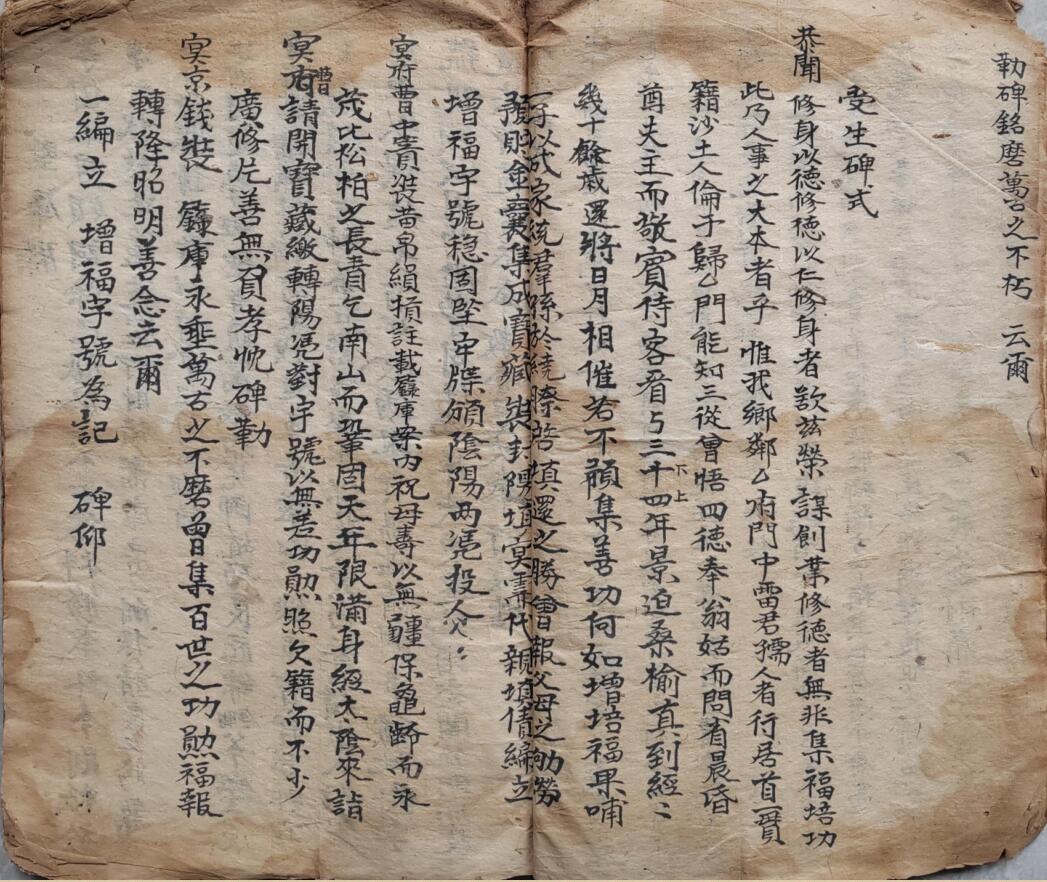 勒碑銘磨萬古之不朽　云爾
受生碑式
恭聞　修身以德修德以仁修身者歆茲榮謀創業修德者無非集福培功
此乃人事之大本者乎　惟我鄉鄰厶府門中雷君孺人者行居首一賈
籍沙土人倫于歸厶門能知三從會悟四德奉翁姑而問省晨昏
尊夫主而敬賓待客看与三十四年景迫桑榆真到經〻
下上
幾十餘歲還將日月相催若不預集善功何如增培福果哺
子以成家統羣孫於繞膝啓填還之勝會報父母之劬勞
預貯金囊集成寶藏裝封堙冥需代親填債編立
增福字號穩固坚牢牒頒陰陽两憑投人
冥府曹中賫送黃帛絹損註載籙庫案內祝母壽以無疆保龜齡而永
茂比松柏之長青乞南山而鞏固天年限滿身經太陰來詣
冥府曹請開寶藏繳轉陽憑對字號以無差功勛照欠籍而不少
廣修片善無負孝忱碑勒
冥京錢裝　籙庫永垂萬古之不磨曾集百世之功勛福報
轉降昭明善念云爾
一編立　增福字號為記　碑仰